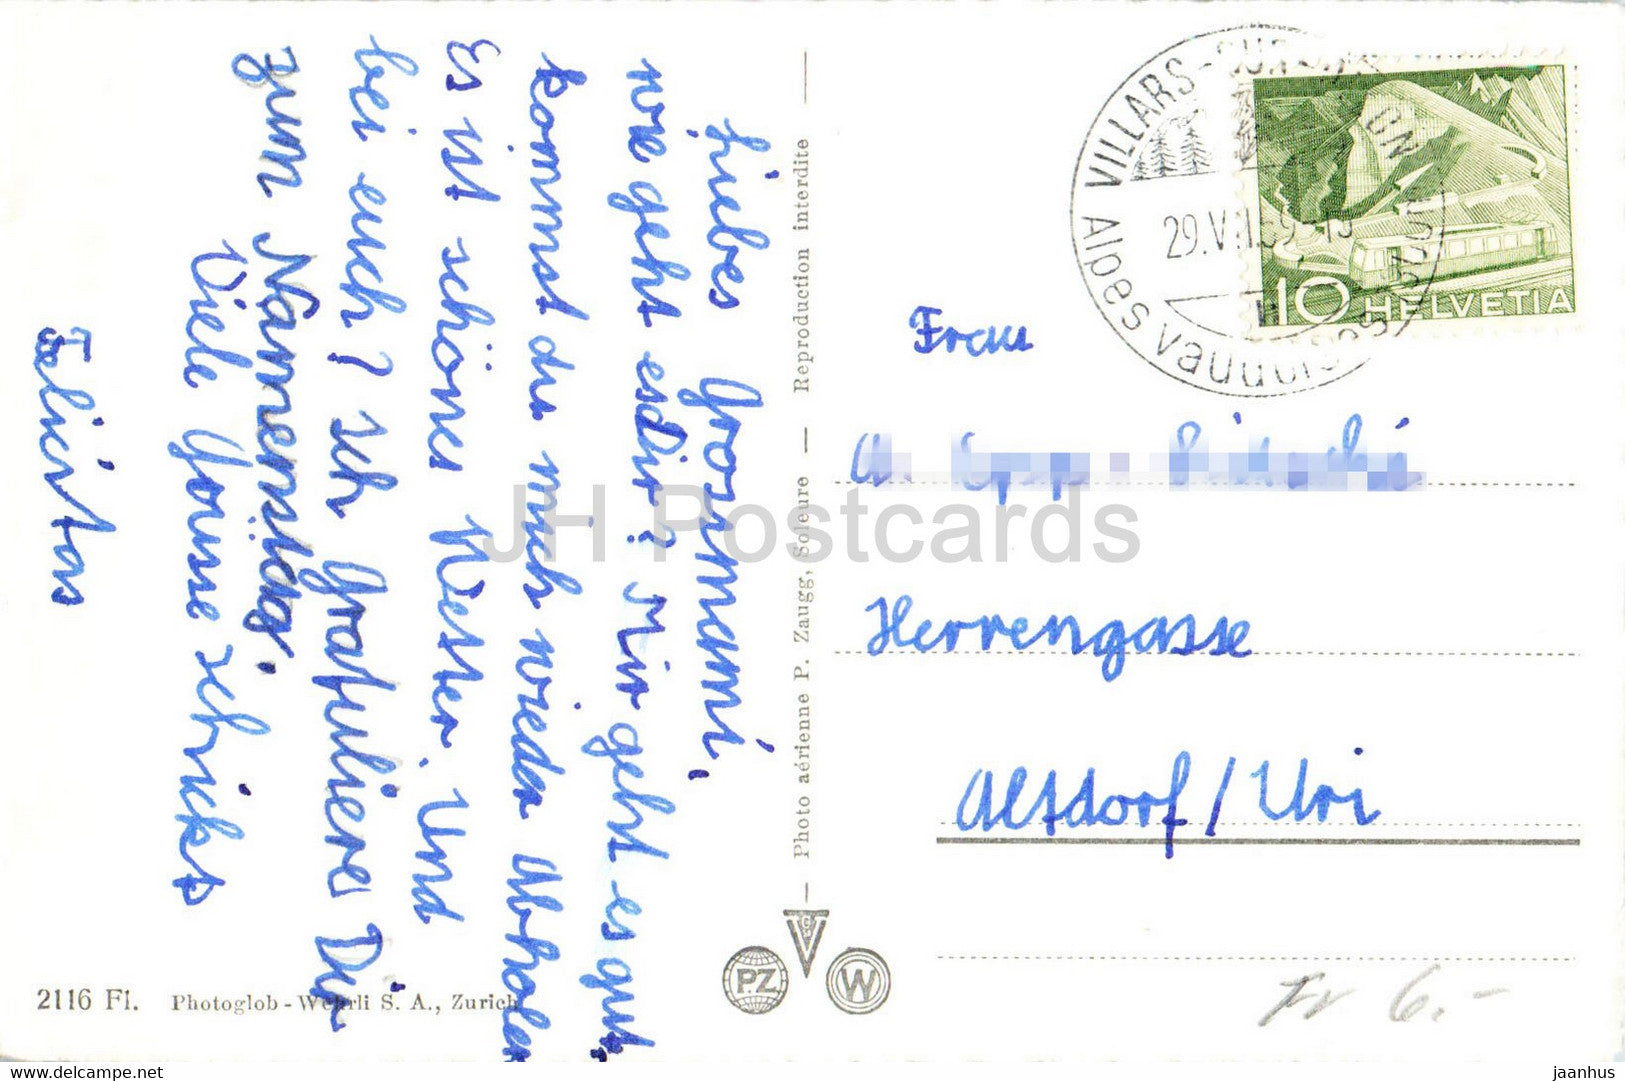 Liebes Grosmumi,
wie geht esdir? Mir geht es gut.
kommst du mich wieder Abholen
Es ist schönes Wetter. Und
bei euch? Ich Gratuliere Dir
zum Namenstag.
Viele Grüsse schickt
Felicitas
2116 Fl. Photoglob-Wehrli S. A., Zurich
Photo aérienne P. Zaugg, Soleure — Reproduction interdite
PZ
VCS
W
VILLARS-SUR-OLLON
29.VII.59-15
Alpes vaudoises
10 HELVETIA
Frau
A. Epp
Herrengasse
Altdorf/Uri
Fr 6.-
JH Postcards
www.delcampe.net
jaanhus